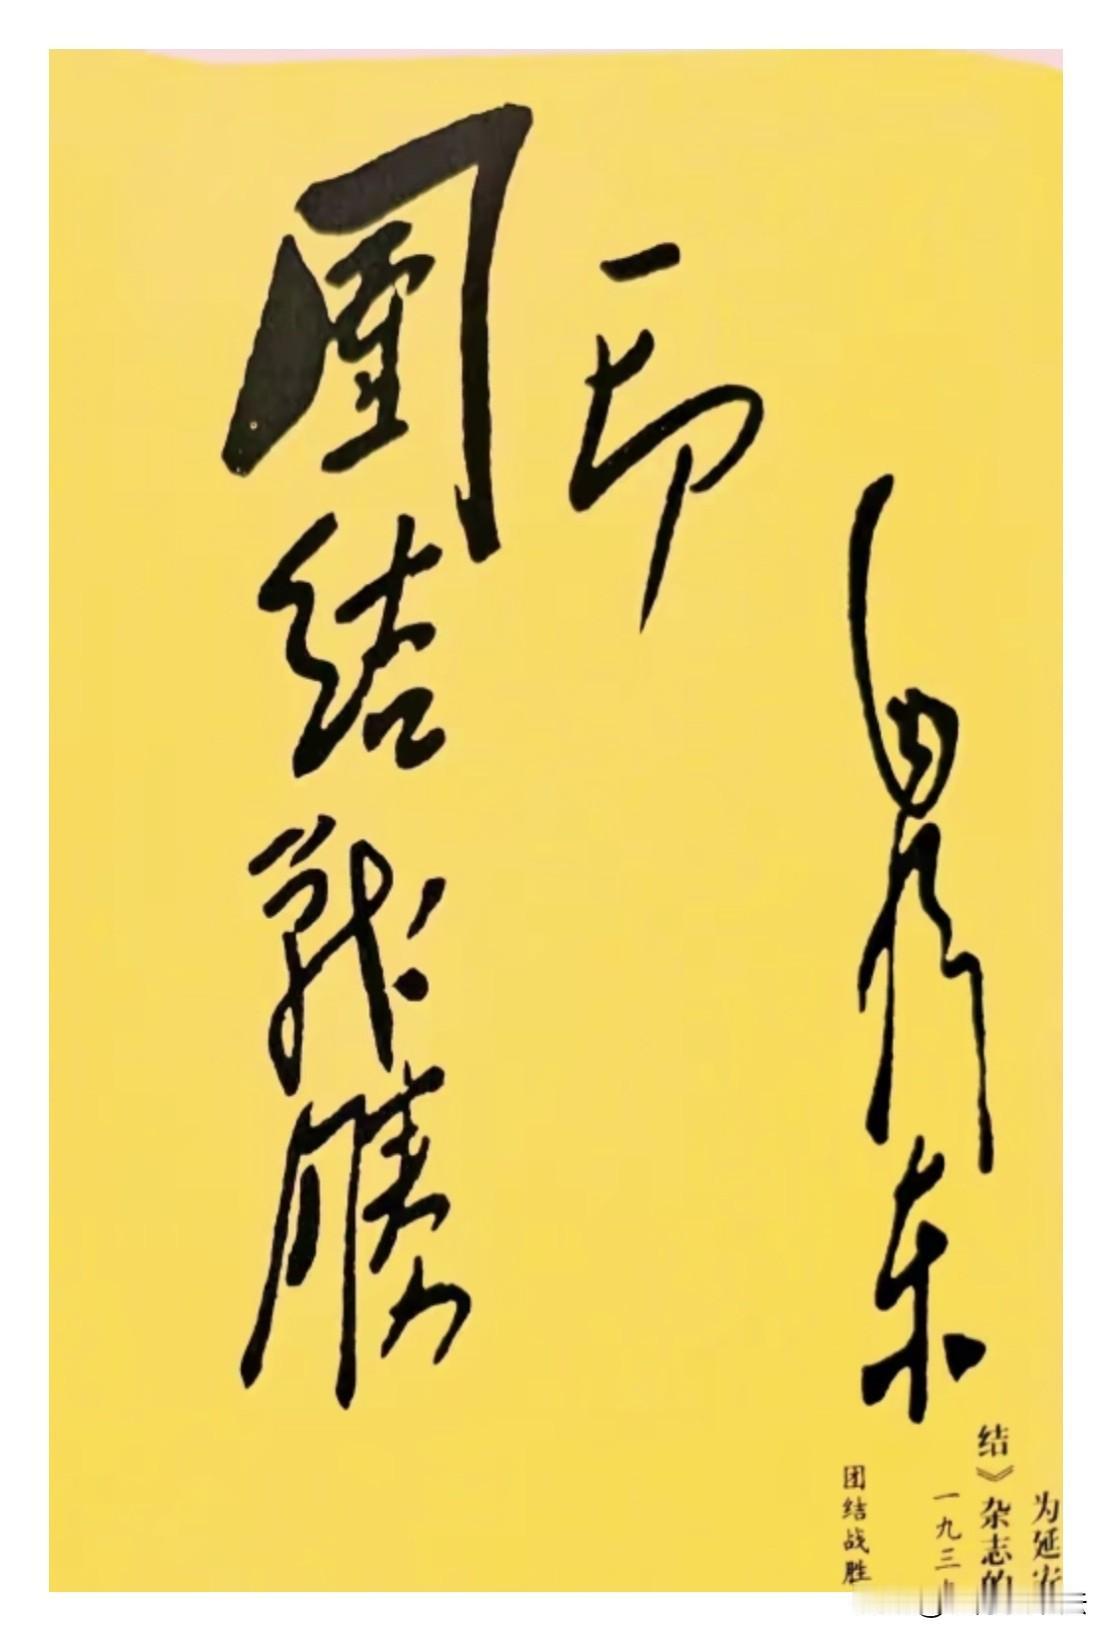 團结战勝
一切
毛泽东
为延安
结》杂志的
一九三
团结战胜